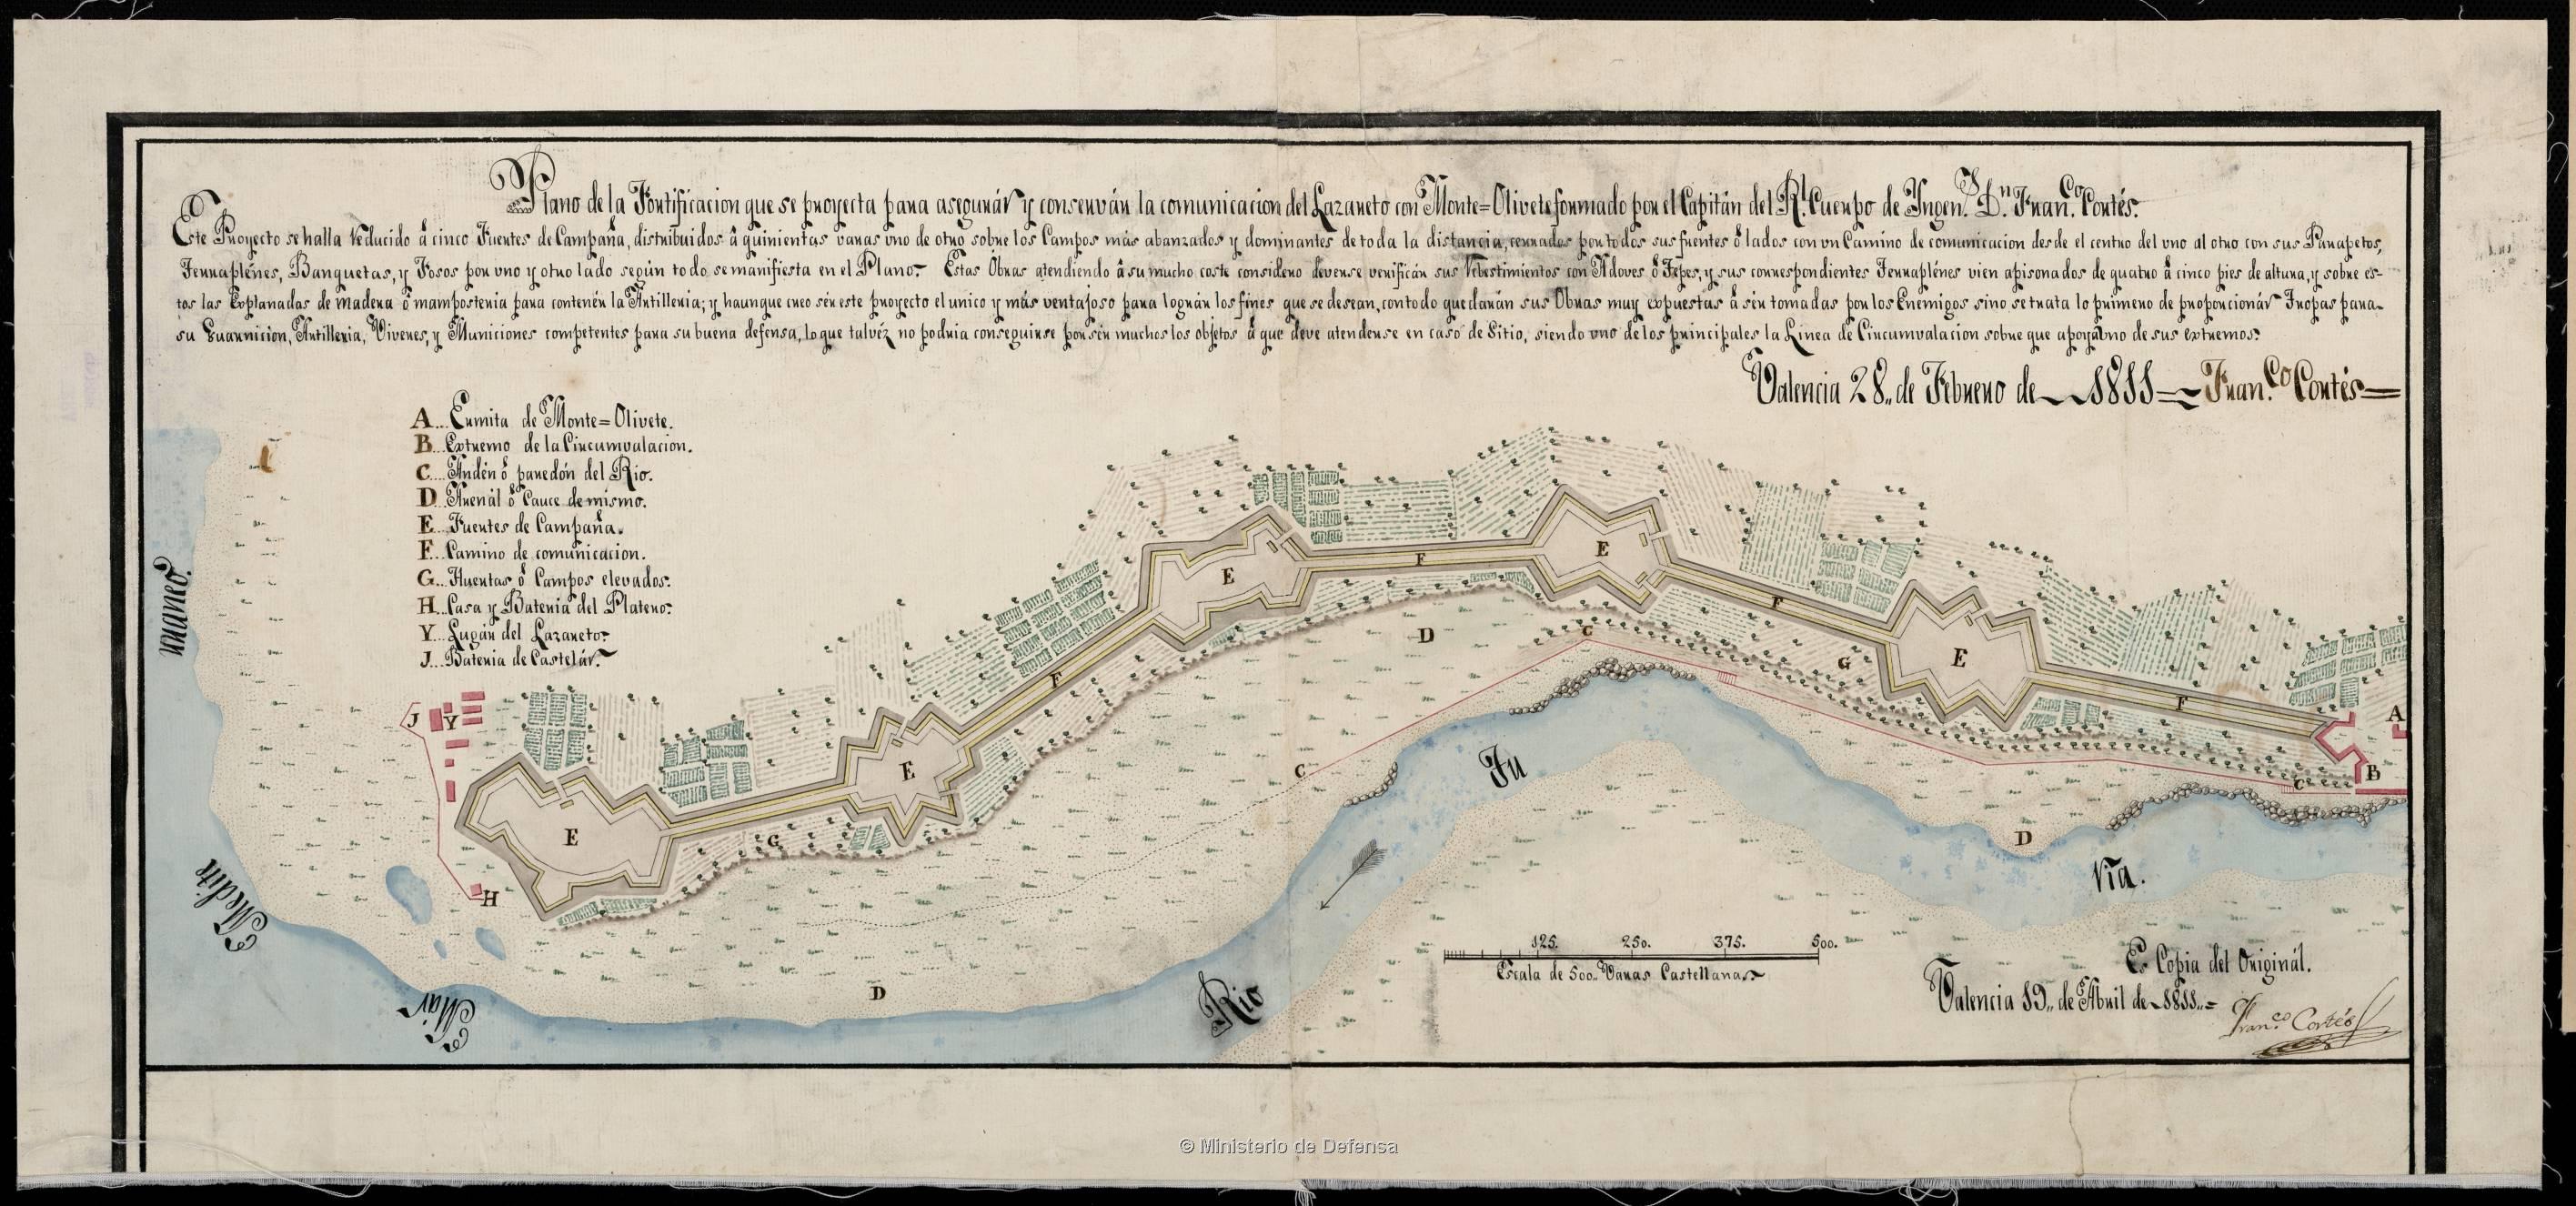 Plano de la Fortificacion que se proyecta para asegurár y conservár la comunicacion del Lazareto con Monte=Olivete formado por el Capitán del Rl. Cuerpo de Yngen.s Dn. Fran.co Cortés.
Este Proyecto se halla reducido á cinco Fuertes de Campaña, distribuidos á quinientas varas uno de otro sobre los Campos más abanzados y dominantes de toda la distancia, cerrados por todos sus frentes ó lados con un Camino de comunicacion desde el centro del uno al otro con sus Parapetos,
Terraplénes, Banquetas, y Fosos por uno y otro lado según todo se manifiesta en el Plano. Estas Obras atendiendo á su mucho coste considero devense verificár sus Rebestimientos con Adoves ó Tepes, y sus correspondientes Terraplénes vien apisonados de quatro á cinco pies de altura, y sobre es-
tos las Explanadas de madera ó mamposteria para contenér la Artilleria; y haunque creo sér este proyecto el unico y más ventajoso para lográr los fines que se desean, con todo quedarán sus Obras muy expuestas á sér tomadas por los Enemigos sino se trata lo primero de proporcionár Tropas para
su Guarnicion, Artilleria, Viveres, y Municiones competentes para su buena defensa, lo que talvéz no podria conseguirse por sér muchos los objetos á que deve atenderse en caso de Sitio, siendo uno de los principales la Linea de Circumvalacion sobre que apoya uno de sus extremos.
Valencia 28,, de Febrero de 1811 = Fran.co Cortés=
A... Ermita de Monte=Olivete.
B... Extremo de la Circumvalacion.
C... Andén ó paredón del Rio.
D... Arenál ó Cauce de mismo.
E... Fuertes de Campaña.
F... Camino de comunicacion.
G... Huertas ó Campos elevados.
H... Casa y Bateria del Platero.
Y... Lugár del Lazareto.
J... Bateria de Castelár.
Mar
Medite
rraneo.
Rio
Tu
ria.
J
Y
H
E
G
E
F
E
F
E
F
E
F
G
D
D
D
C
C
C
A
B
125. 250. 375. 500.
Escala de 500.. Varas Castellanas
Es Copia del Originál.
Valencia 19,, de Abril de 1811.=
Fran.co Cortés
© Ministerio de Defensa